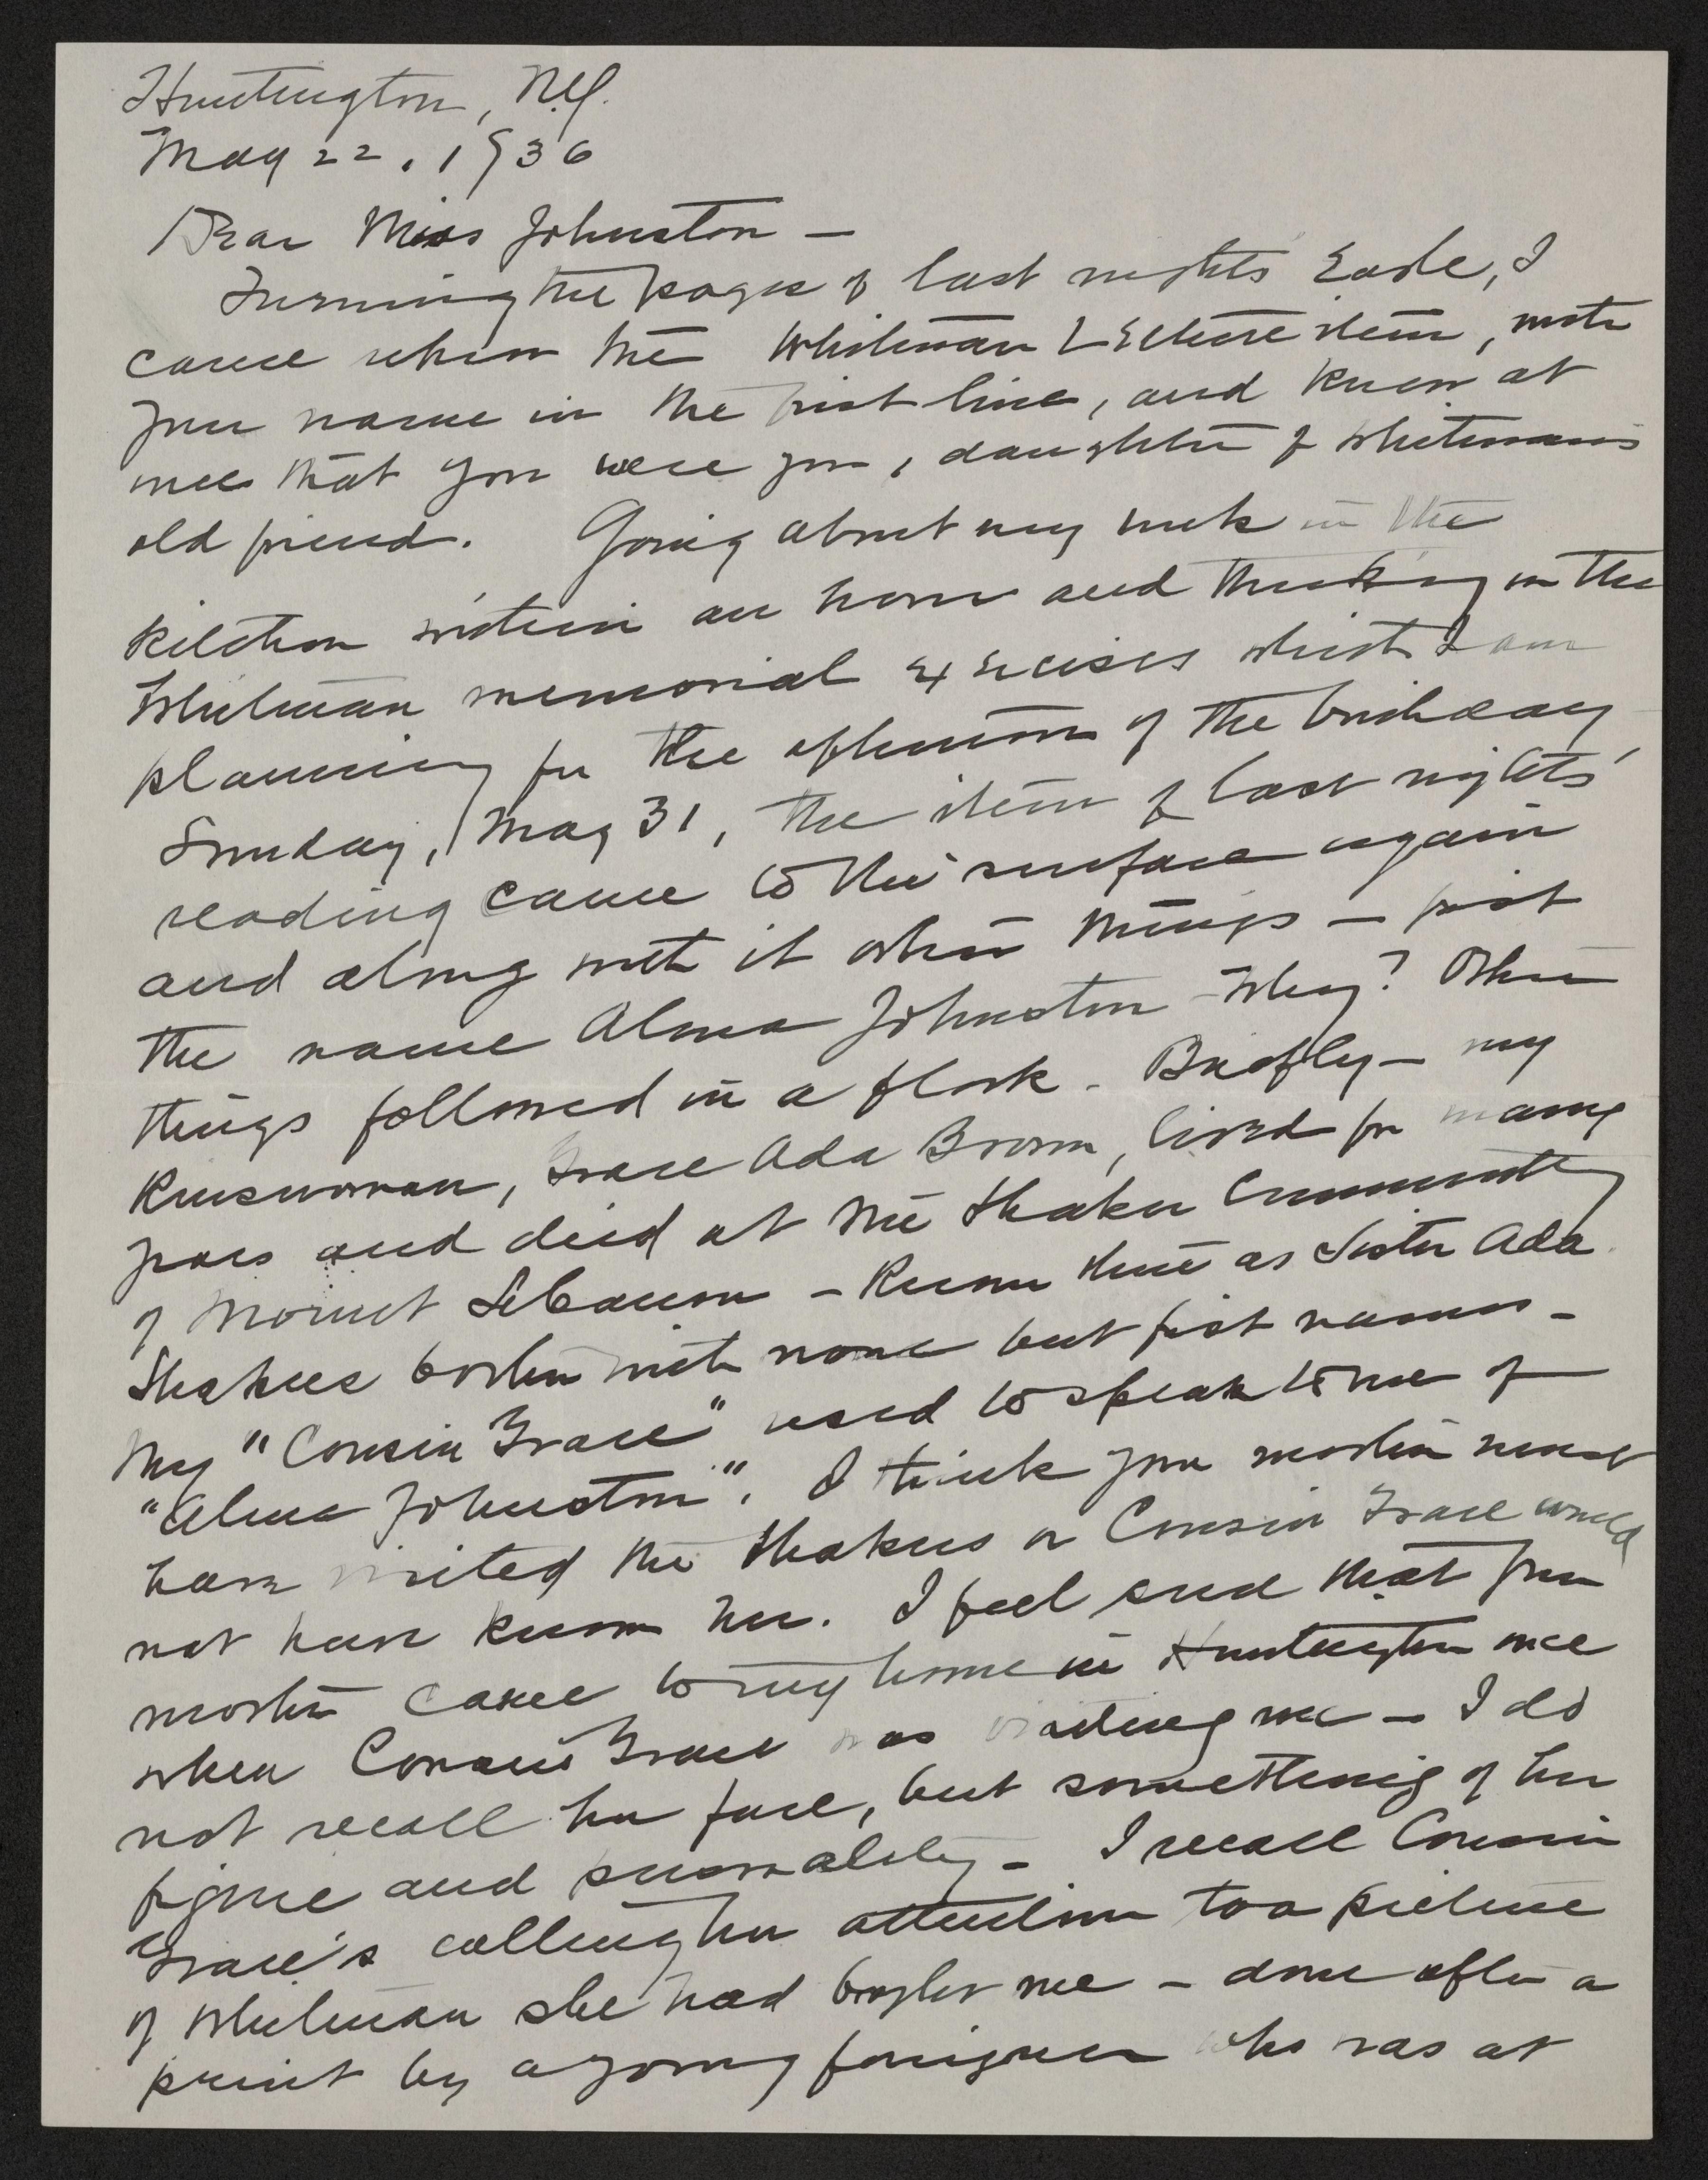 Huntington, N.Y.
May 22, 1936
Dear Miss Johnston —
Turning the pages of last nights' Eagle, I
came upon the Whitman Lecture item, with
your name in the first line, and knew at
once that you were you, daughter of Whitman's
old friend. Going about my work in the
kitchen within an hour and thinking on the
Whitman memorial exercises which I am
planning for the afternoon of the birthday
Sunday, May 31, the item of last nights'
reading came to the surface again
and along with it other things — first
the name Alma Johnston - Why? Other
things followed in a flock. Briefly — my
kinswoman, Grace Ada Brown, lived for many
years and died at the Shaker Community
of Mount Lebanon — known there as Sister Ada.
Shakers bother with none but first names —
My "Cousin Grace" used to speak to me of
"Alma Johnston". I think your mother must
have visited the Shakers or Cousin Grace would
not have known her. I feel sure that your
mother came to my home in Huntington once
when Cousin Grace was visiting me — I do
not recall her face, but something of her
figure and personality — I recall Cousin
Grace's calling her attention to a picture
of Whitman she had brought me — done after a
print by a young foreigner who was at